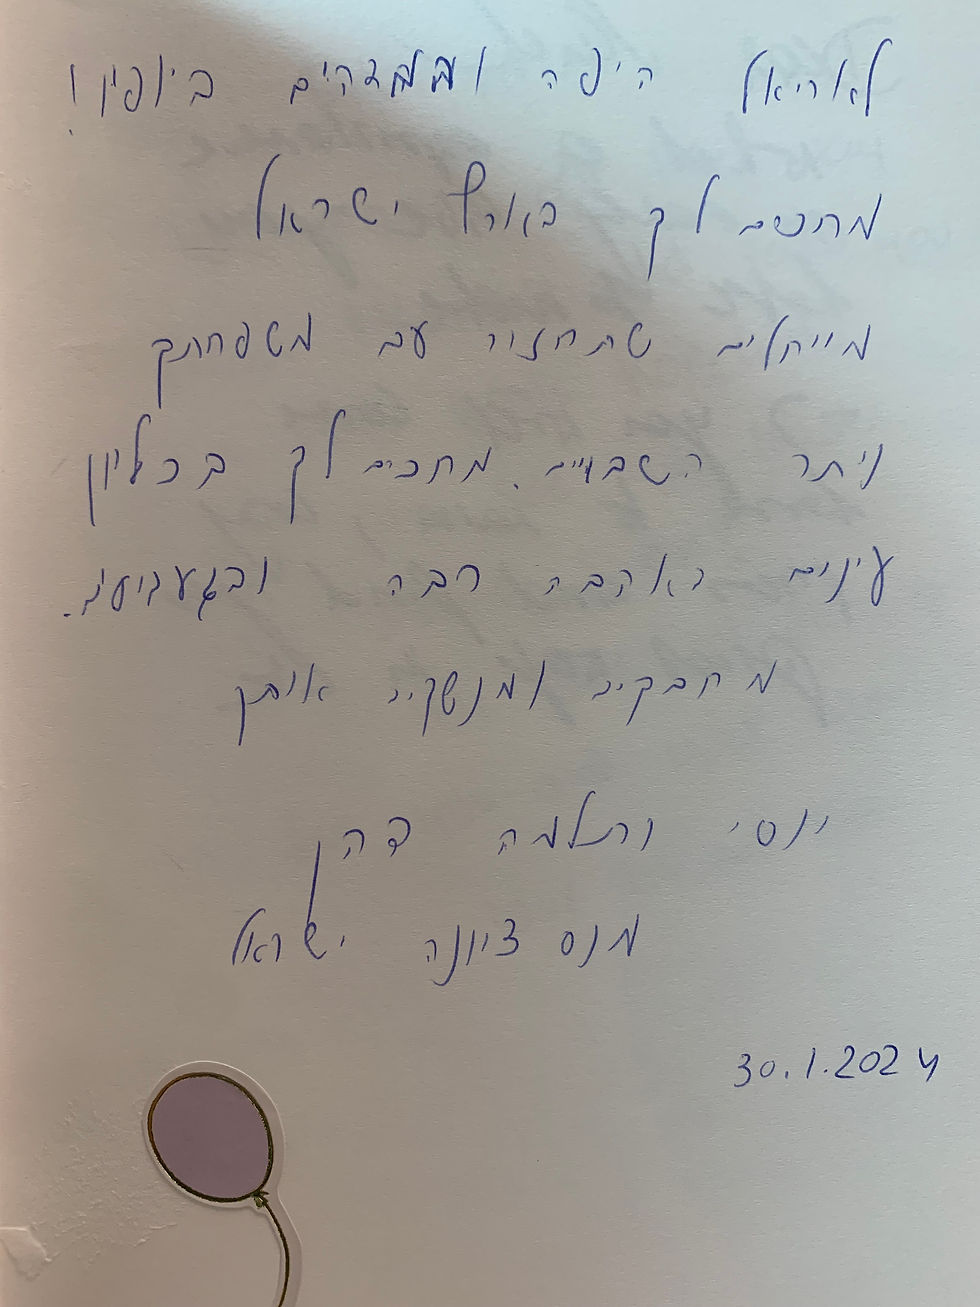 לאריאל היפה ומדהים ביופין!
מחכים לך בארץ ישראל
מייחלים שתחזור עם משפחתך
ויתר השבויים. מחכים לך בכליון
עינים באהבה רבה ובגעגועים.
מחבקים ומנשקים אותך
יוסי ושלמה דהן
מנס ציונה ישראל
30.1.2024